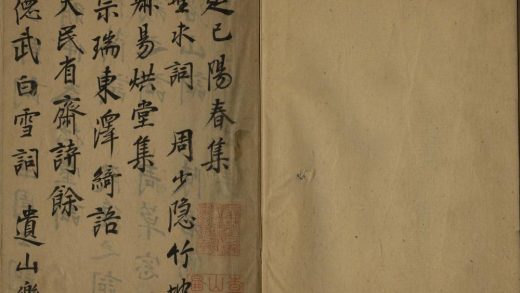 已陽春集
求詞 周少隱竹坡
易烘堂集
宗瑞東澤綺語
民有齋詩餘
德武白雪詞 遺山樂